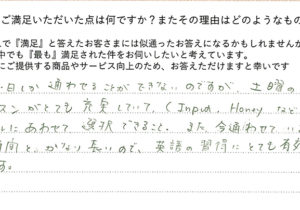 ご満足いただいた点は何ですか？またその理由はどのようなもの
で『満足』と答えたお客さまには似通ったお答えになるかもしれませんが
中でも『最も』満足された件をお伺いしたいと考えています。
にご提供する商品やサービス向上のため、お答えいただけますと幸いです
日しか通わせることができないのですが、土曜の
スンがとても充実していて、(Input, Honey など
にあわせて選択できること。また、今通わせてい
時間と、かなり長いので、英語の習得にとても有効
す。